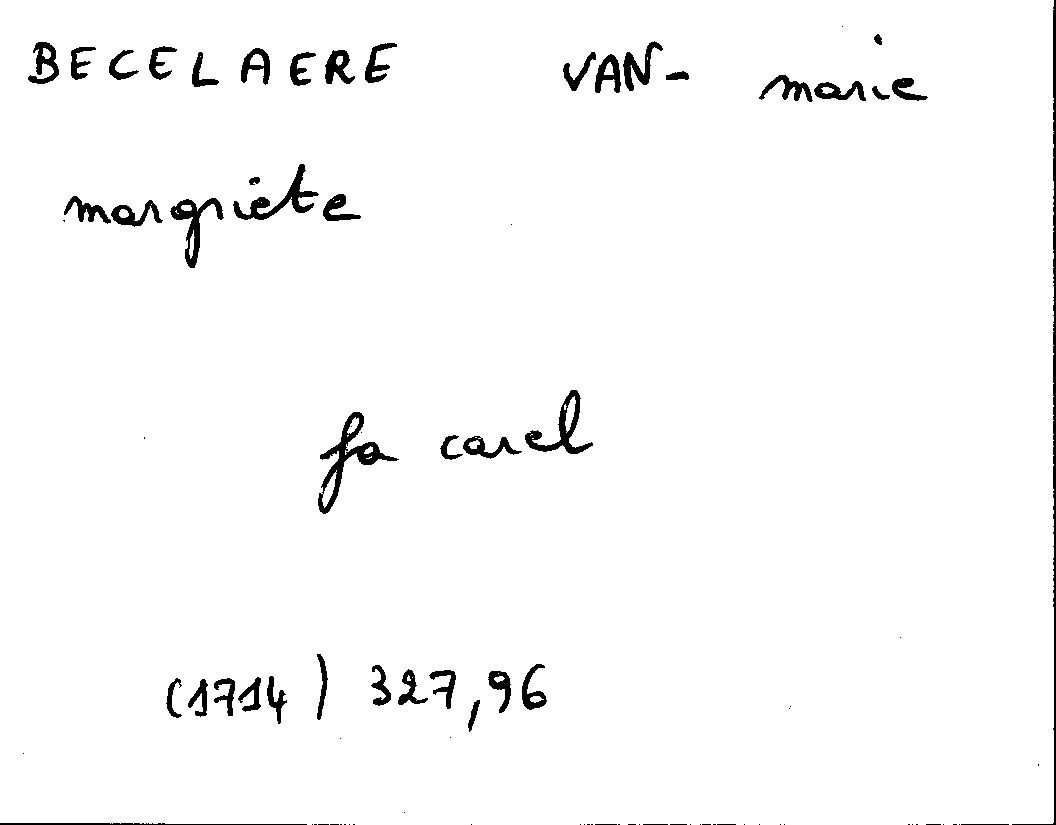 BECELAERE VAN- marie
margriete
fa carel
(1714) 327,96